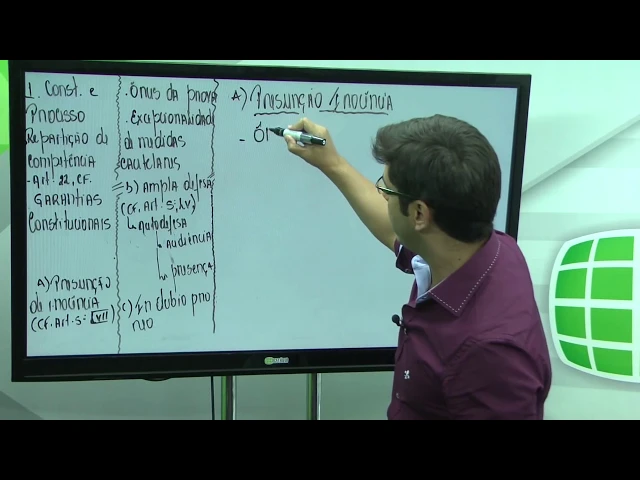 I. Const. e
Processo
Repartição de
Competência
- Art. 22, CF.
Garantias
Constitucionais
A) Presunção
de inocência
(CF. Art. 5:
. Ônus da prova
. Excepcionalidade
de medidas
cautelares
b) Ampla defesa
(CF. Art. 5, LV)
↳ autodefesa
↳ audiência
↳ presença
c) In dubio pro
reo
A) Presunção Inocência
- Ôn